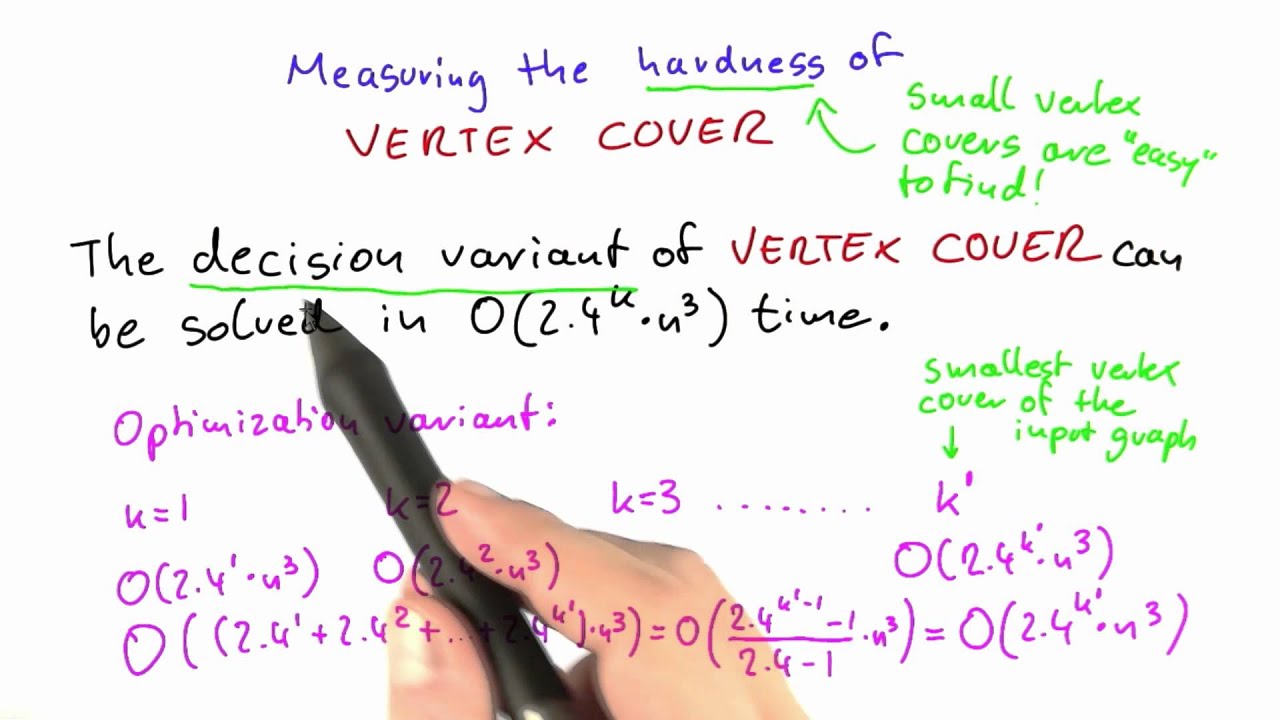 Measuring the hardness of
VERTEX COVER
small vertex
covers are "easy"
to find!
The decision variant of VERTEX COVER can
be solved in O(2.4^k·n³) time.
Optimization variant:
smallest vertex
cover of the
input graph
k=1 k=2 k=3 ........ k'
O(2.4¹·n³) O(2.4²·n³) O(2.4^k'·n³)
O((2.4¹+2.4²+...+2.4^k')·n³) = O((2.4^k'-1 -1)/(2.4-1)·n³) = O(2.4^k'·n³)